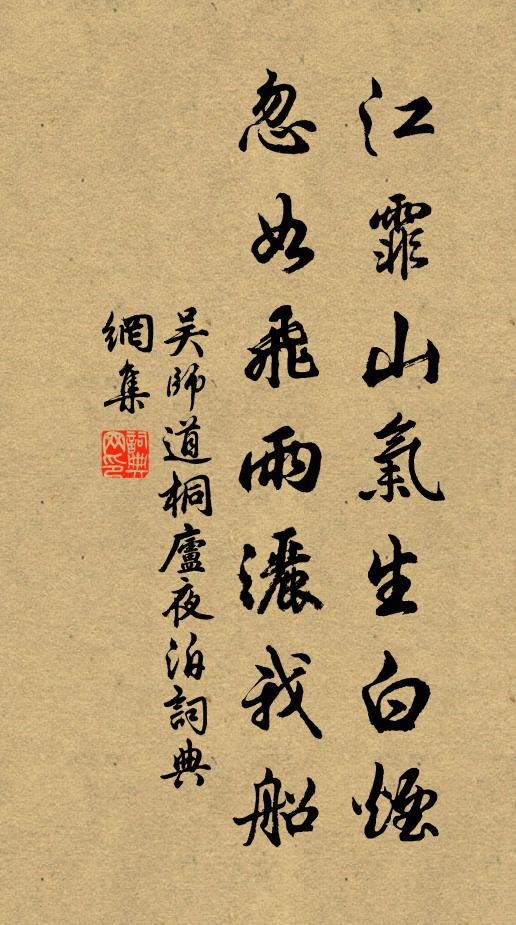 江霏山氣生白煙
忽如飛雨灑我船
吳師道桐廬夜泊詞典
網集
詞典
网印